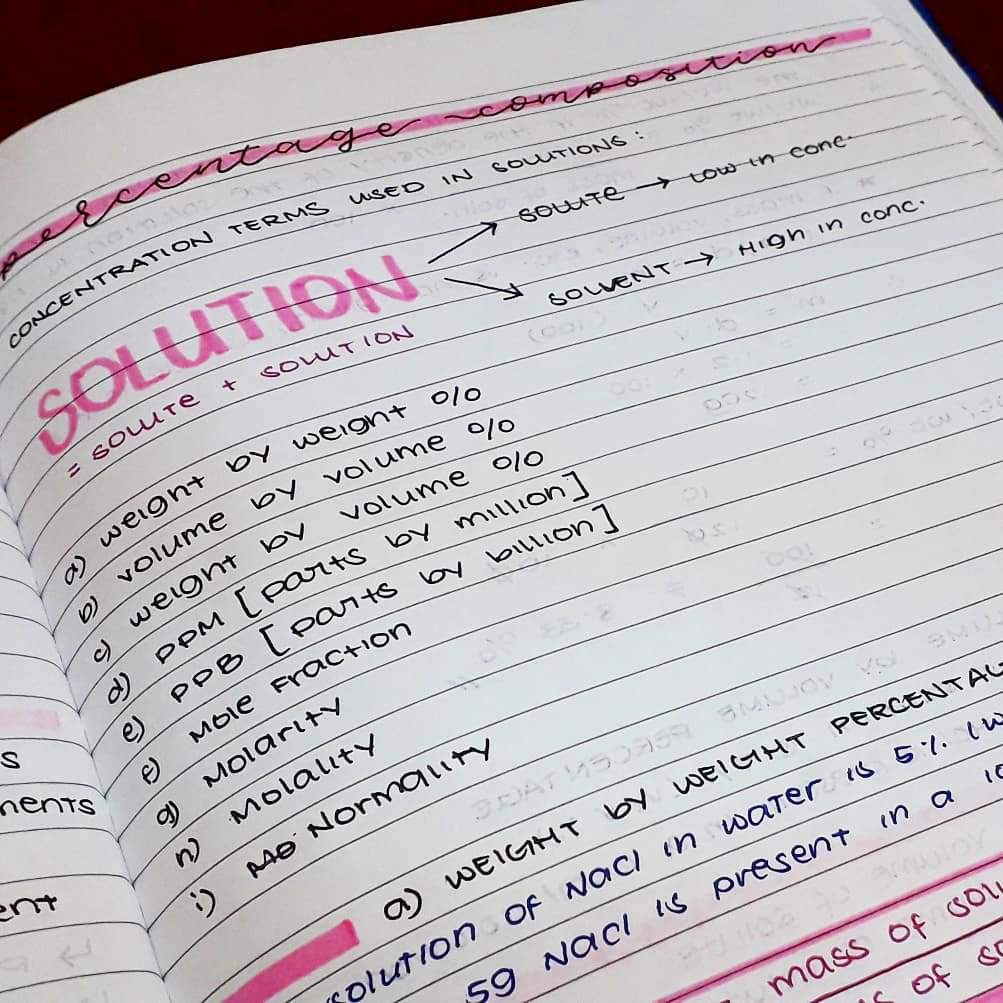 percentage composition
CONCENTRATION TERMS USED IN SOLUTIONS :
SOLUTION
SOLUTE → LOW in conc.
SOLVENT → High in conc.
= SOLUTE + SOLUTION
a) weight by weight %
b) volume by volume %
c) weight by volume %
d) PPM [parts by million]
e) PPB [parts by billion]
f) Mole Fraction
g) Molarity
h) Molality
i) Normality
a) WEIGHT by WEIGHT PERCENTAG
solution of Nacl in water is 5%. (w
5g Nacl is present in a 10
mass of solu
of so
s
nents
ent